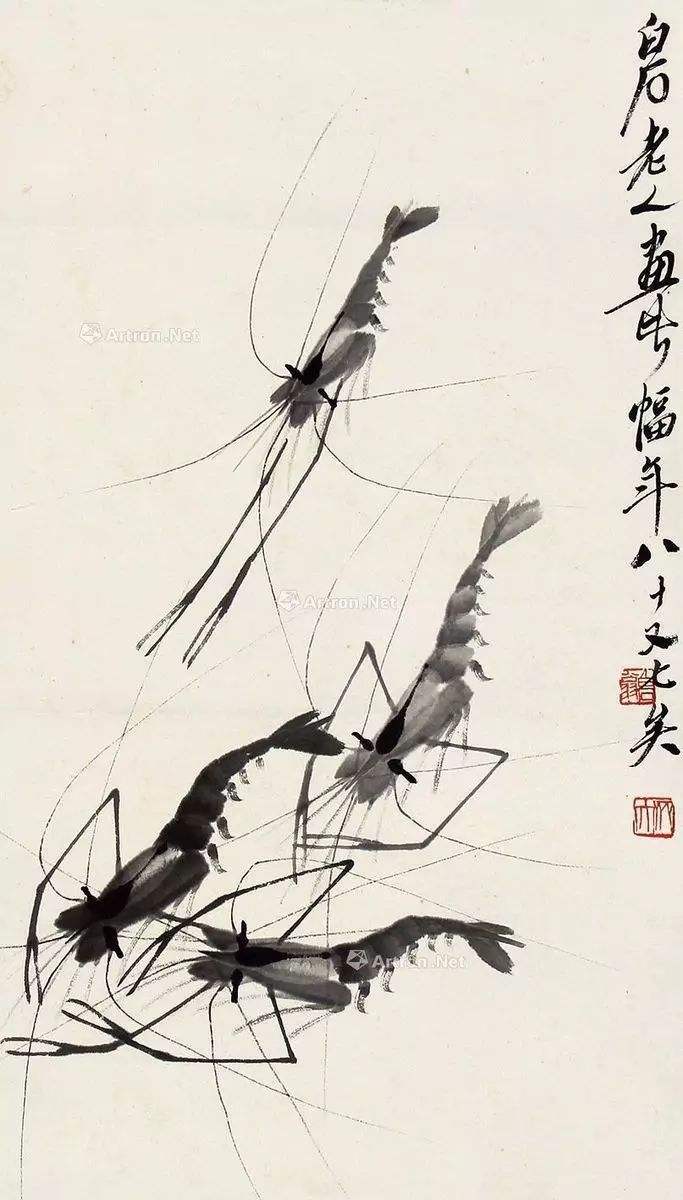 白石老人畫此幅年八十又七矣
Artron.Net
Artron.Net
Artron.Net